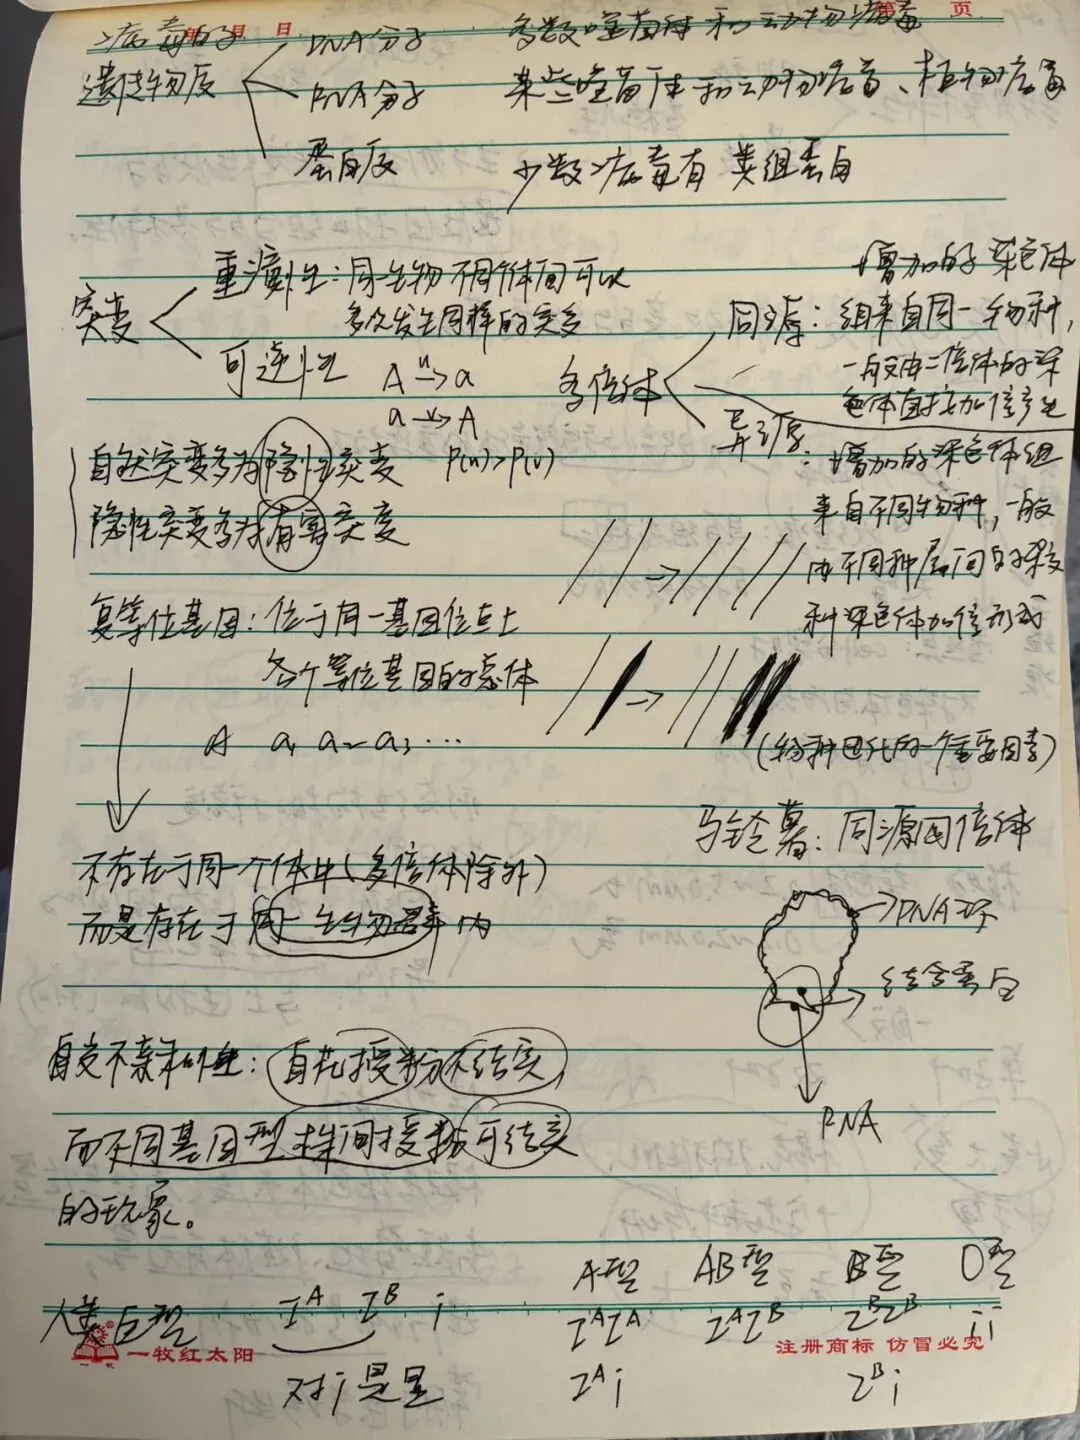 月 日 第 页
病毒的 DNA分子 多数噬菌体和动物病毒
遗传物质 RNA分子 某些噬菌体和动物病毒、植物病毒
蛋白质 少数病毒有 类组蛋白
突变
重演性:同生物不同个体间可以
多次发生同样的突变
可逆性 A u→ a
a v→ A
自然突变多为隐性突变 P(u)>P(v)
隐性突变多为有害突变
多倍体
同源:增加的染色体
组来自同一物种,
一般由二倍体的染
色体直接加倍产生
异源:增加的染色体组
来自不同物种,一般
由不同种属间的杂交
种染色体加倍形成
(物种进化的一个重要因素)
复等位基因:位于同一基因位点上
各个等位基因的总体
A a₁ a₂ a₃ ...
马铃薯:同源四倍体
不存在于同一个体中(多倍体除外)
而是存在于同一生物群内
DNA环
结合蛋白
RNA
自发不亲和性:自花授粉不结实,
而不同基因型株间授粉可结实
的现象。
A型 AB型 B型 O型
人类血型 Iᴬ Iᴮ i IᴬIᴬ IᴬIᴮ IᴮIᴮ ii
对i是显 Iᴬi Iᴮi
一牧红太阳 注册商标 仿冒必究